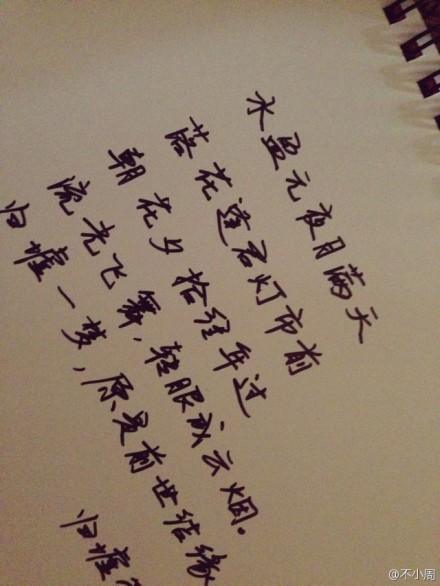 水盈元夜月满天
落花逢君灯市前
朝花夕拾经年过
流光飞舞,轻服成云烟。
归墟一梦,原是前世结缘
归墟
@不小周